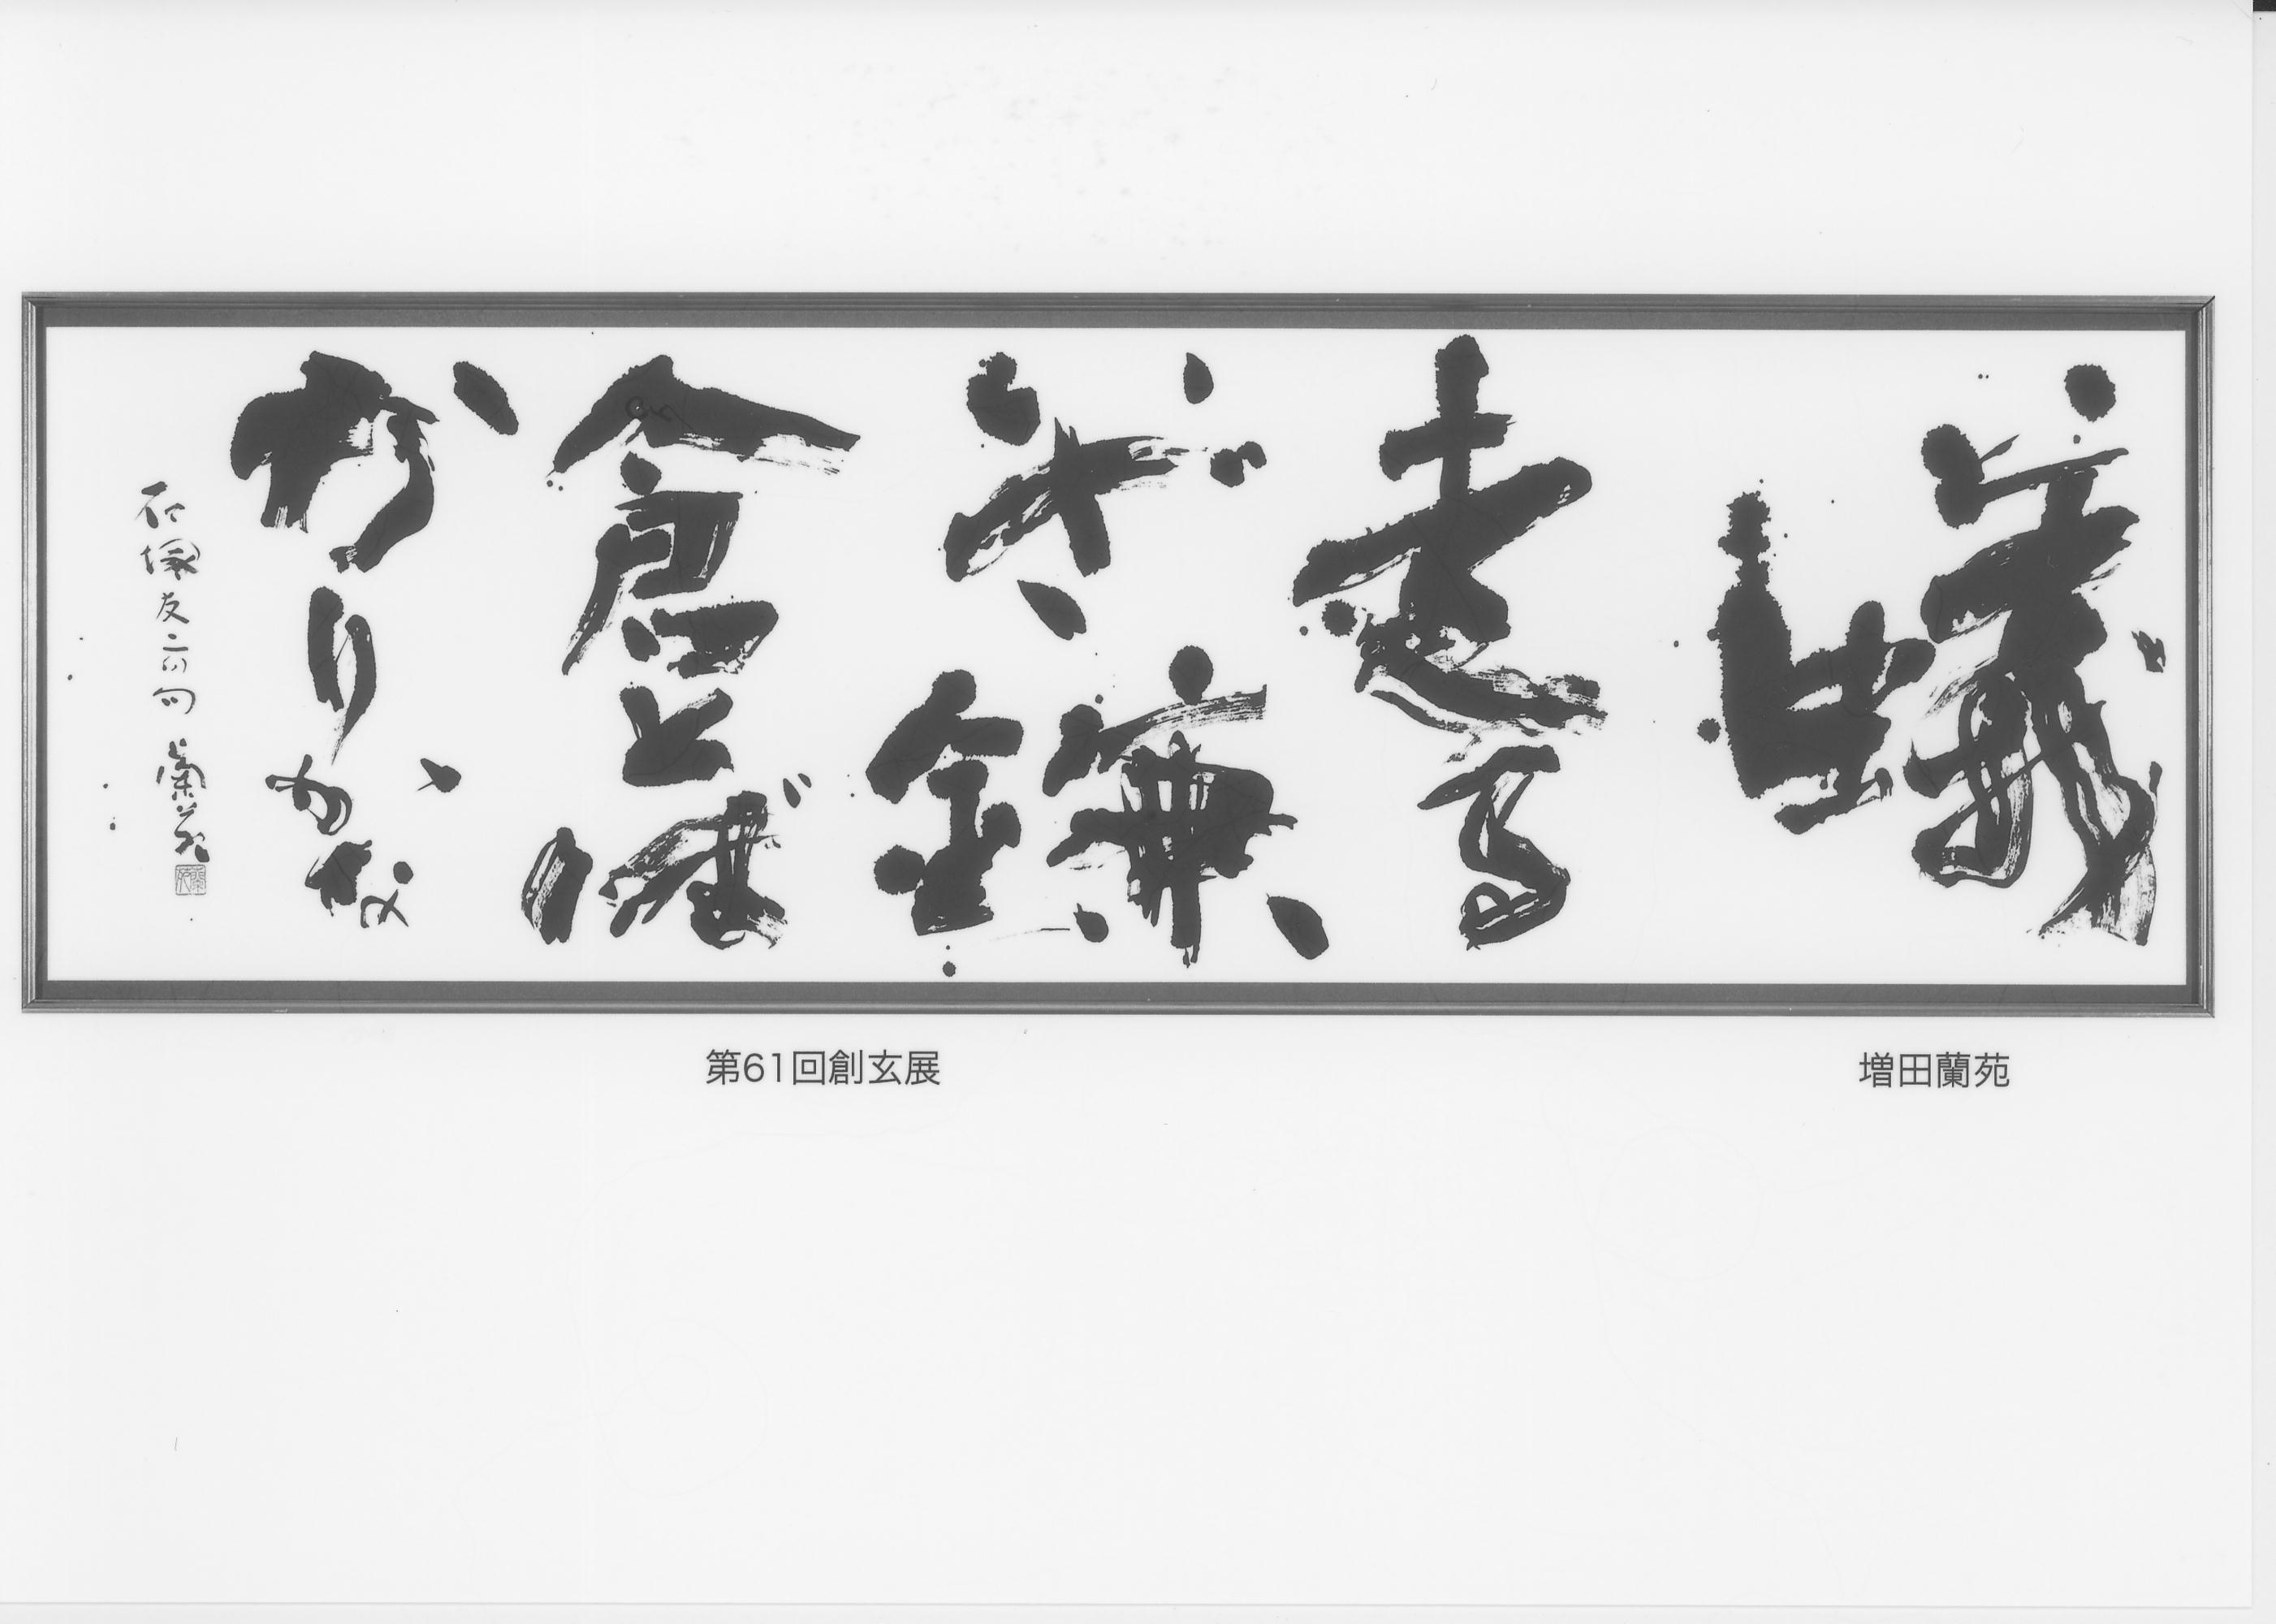 蟻
走る
いざ鎌
倉とば
かりかな
石塚友二の句 蘭苑
第61回創玄展
増田蘭苑